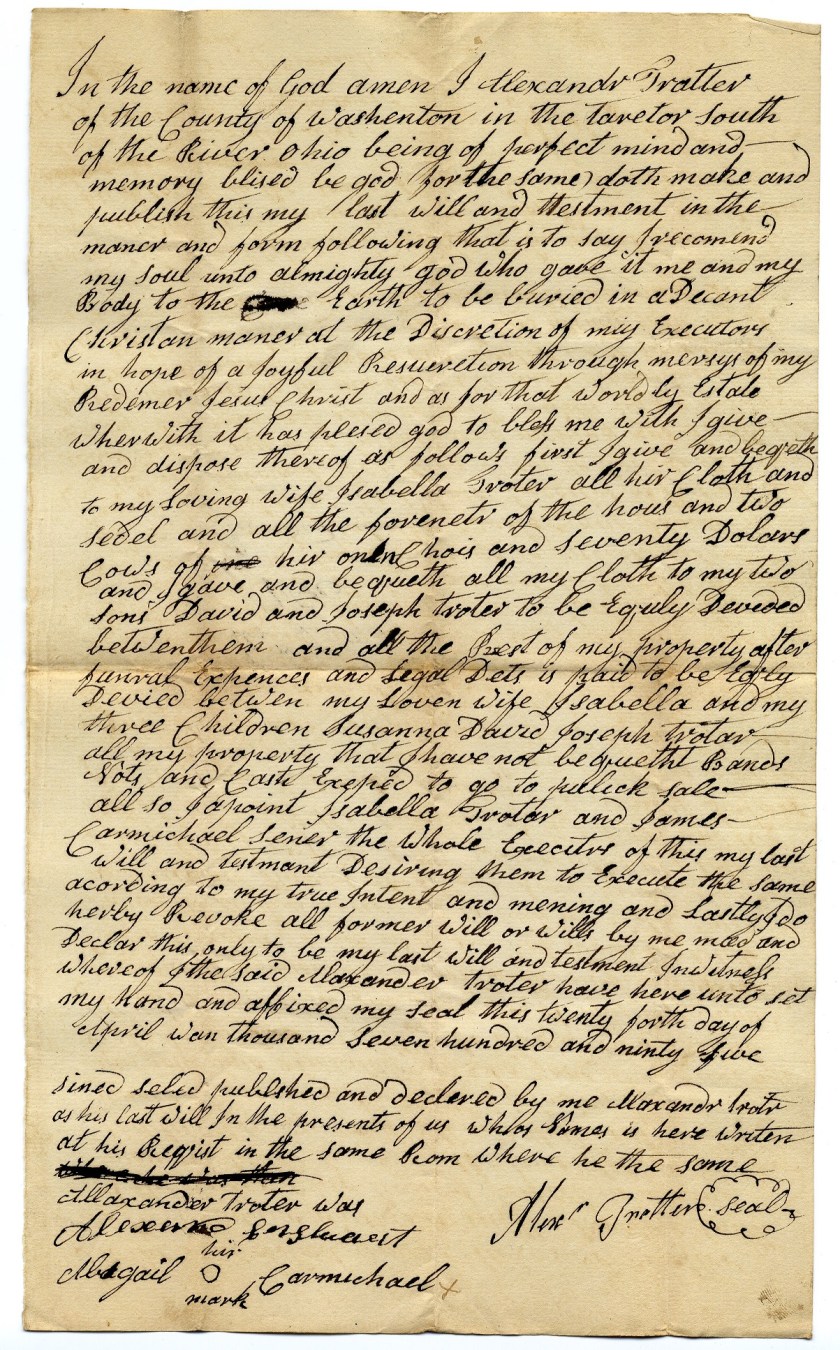 In the name of God amen I Alexandr Trotter
of the County of Washenton in the taretor South
of the River Ohio being of perfect mind and
memory blised be god for the same doth make and
publish this my last will and ttestment in the
maner and form following that is to say I recomend
my soul unto almighty god who gave it me and my
Body to the Earth to be buried in a Decant
Christan maner at the Discretion of miy Executors
in hope of a Joyful Resueretion through mersys of my
Redemer Jesus Christ and as for that worldly Estate
wherwith it has plesed god to bless me with I give
and dispose thereof as follows first I give and beqeth
to my Loving wife Isabella Troter all hir Cloth and
sedel and all the forenetr of the hous and two
Cows of hir onen Chois and seventy Dolars
and I gave and bequeth all my Cloth to my two
sons David and Joseph troter to be Equly Devided
betwen them and all the Rest of my property after
funral Expences and Legal Dets is paid to be Eqly
Devied betwen my Loven wife Isabella and my
three Children Susanna David Joseph trotar
all my property that I have not bequetht Bands
Nots and Cash Exepted to go to pulick sale
all so I apoint Isabella Trotar and James
Carmichael sener the whole Executrs of this my last
will and testmant Desiring them to Execute the same
acording to my true Intent and mening and Lastly I do
herby Revoke all former will or wills by me maed and
Declar this only to be my last will and testment In witness
whereof I the said Alaxander troter have here unto set
my Hand and affixed my seal this twenty forth day of
April wan thousand seven hundred and ninty five
sined seled publshed and declered by me Alaxandr trotr
as his last will In the presents of us whos Nmes is here writen
at his Reqist in the same Rom where he the same
Allaxander troter was
Alexr Trotter seal
hir
Abigail O Carmichael x
mark